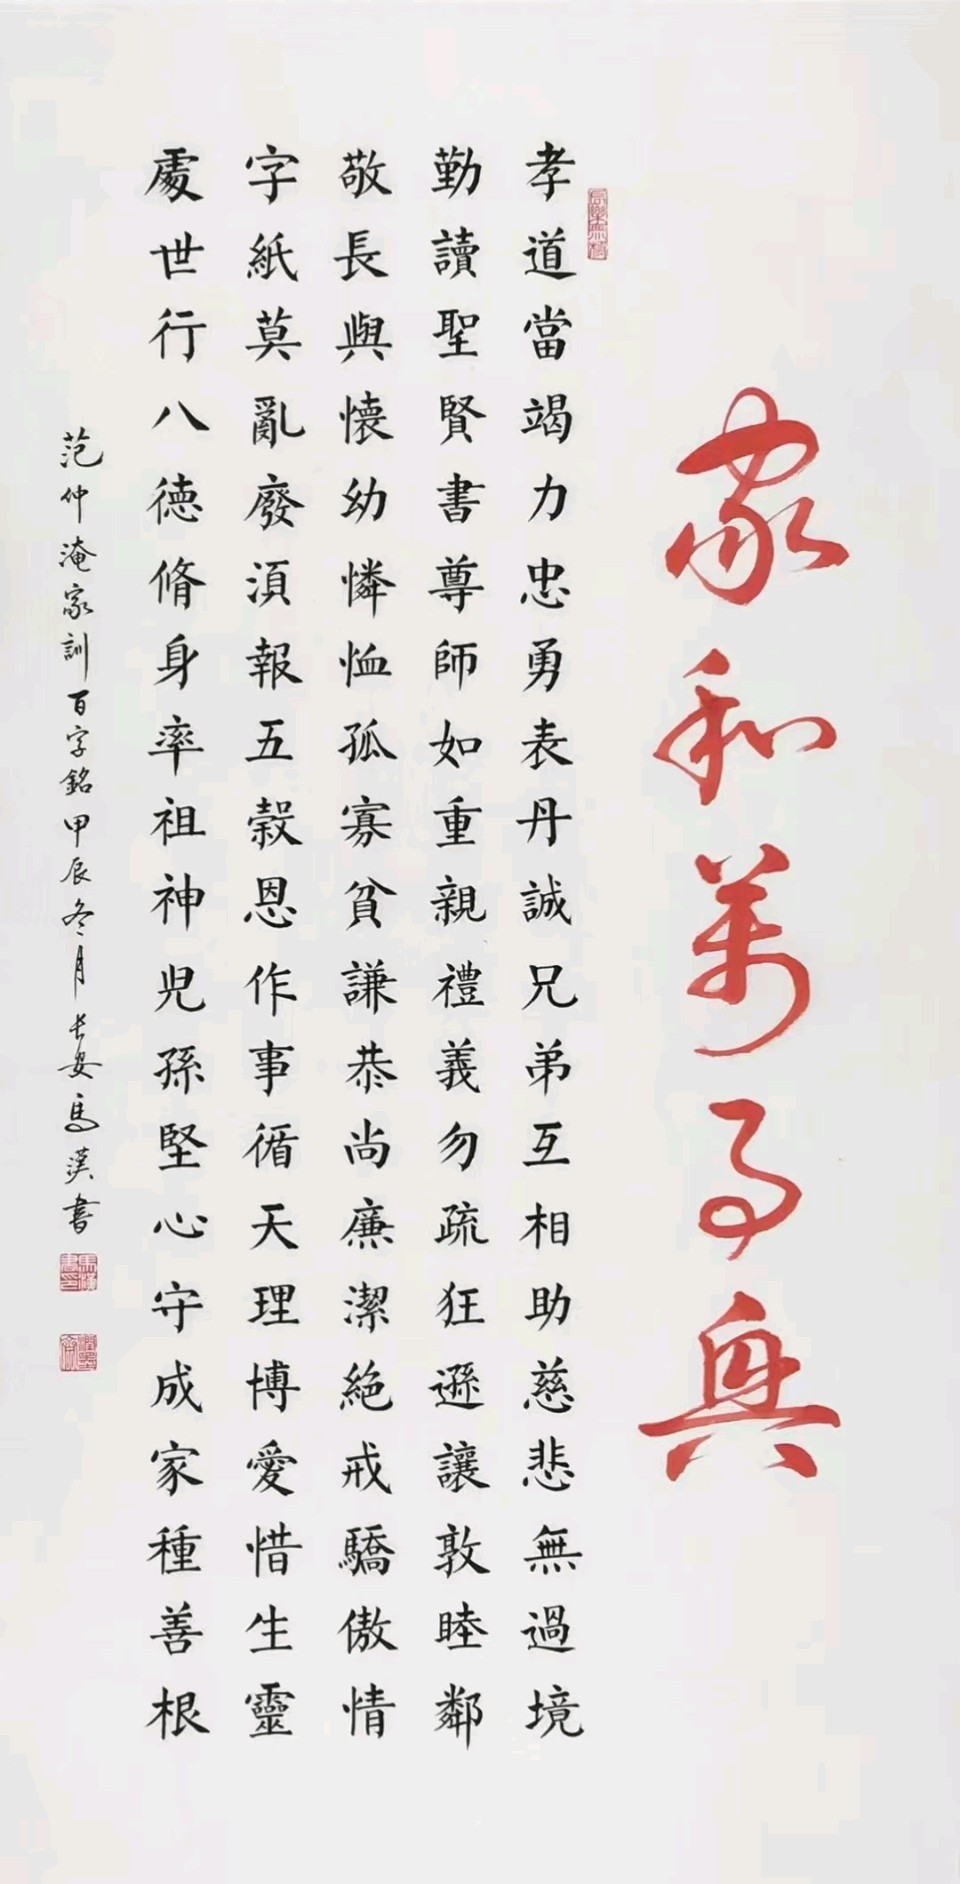 家和萬事興
孝道當竭力忠勇表丹誠兄弟互相助慈悲無過境
勤讀聖賢書尊師如重親禮義勿疏狂遜讓敦睦鄰
敬長與懷幼憐恤孤寡貧謙恭尚廉潔絕戒驕傲情
字紙莫亂廢須報五榖恩作事循天理博愛惜生靈
處世行八德脩身率祖神兒孫堅心守成家種善根
范仲淹家訓百字銘甲辰冬月長安馬漢書